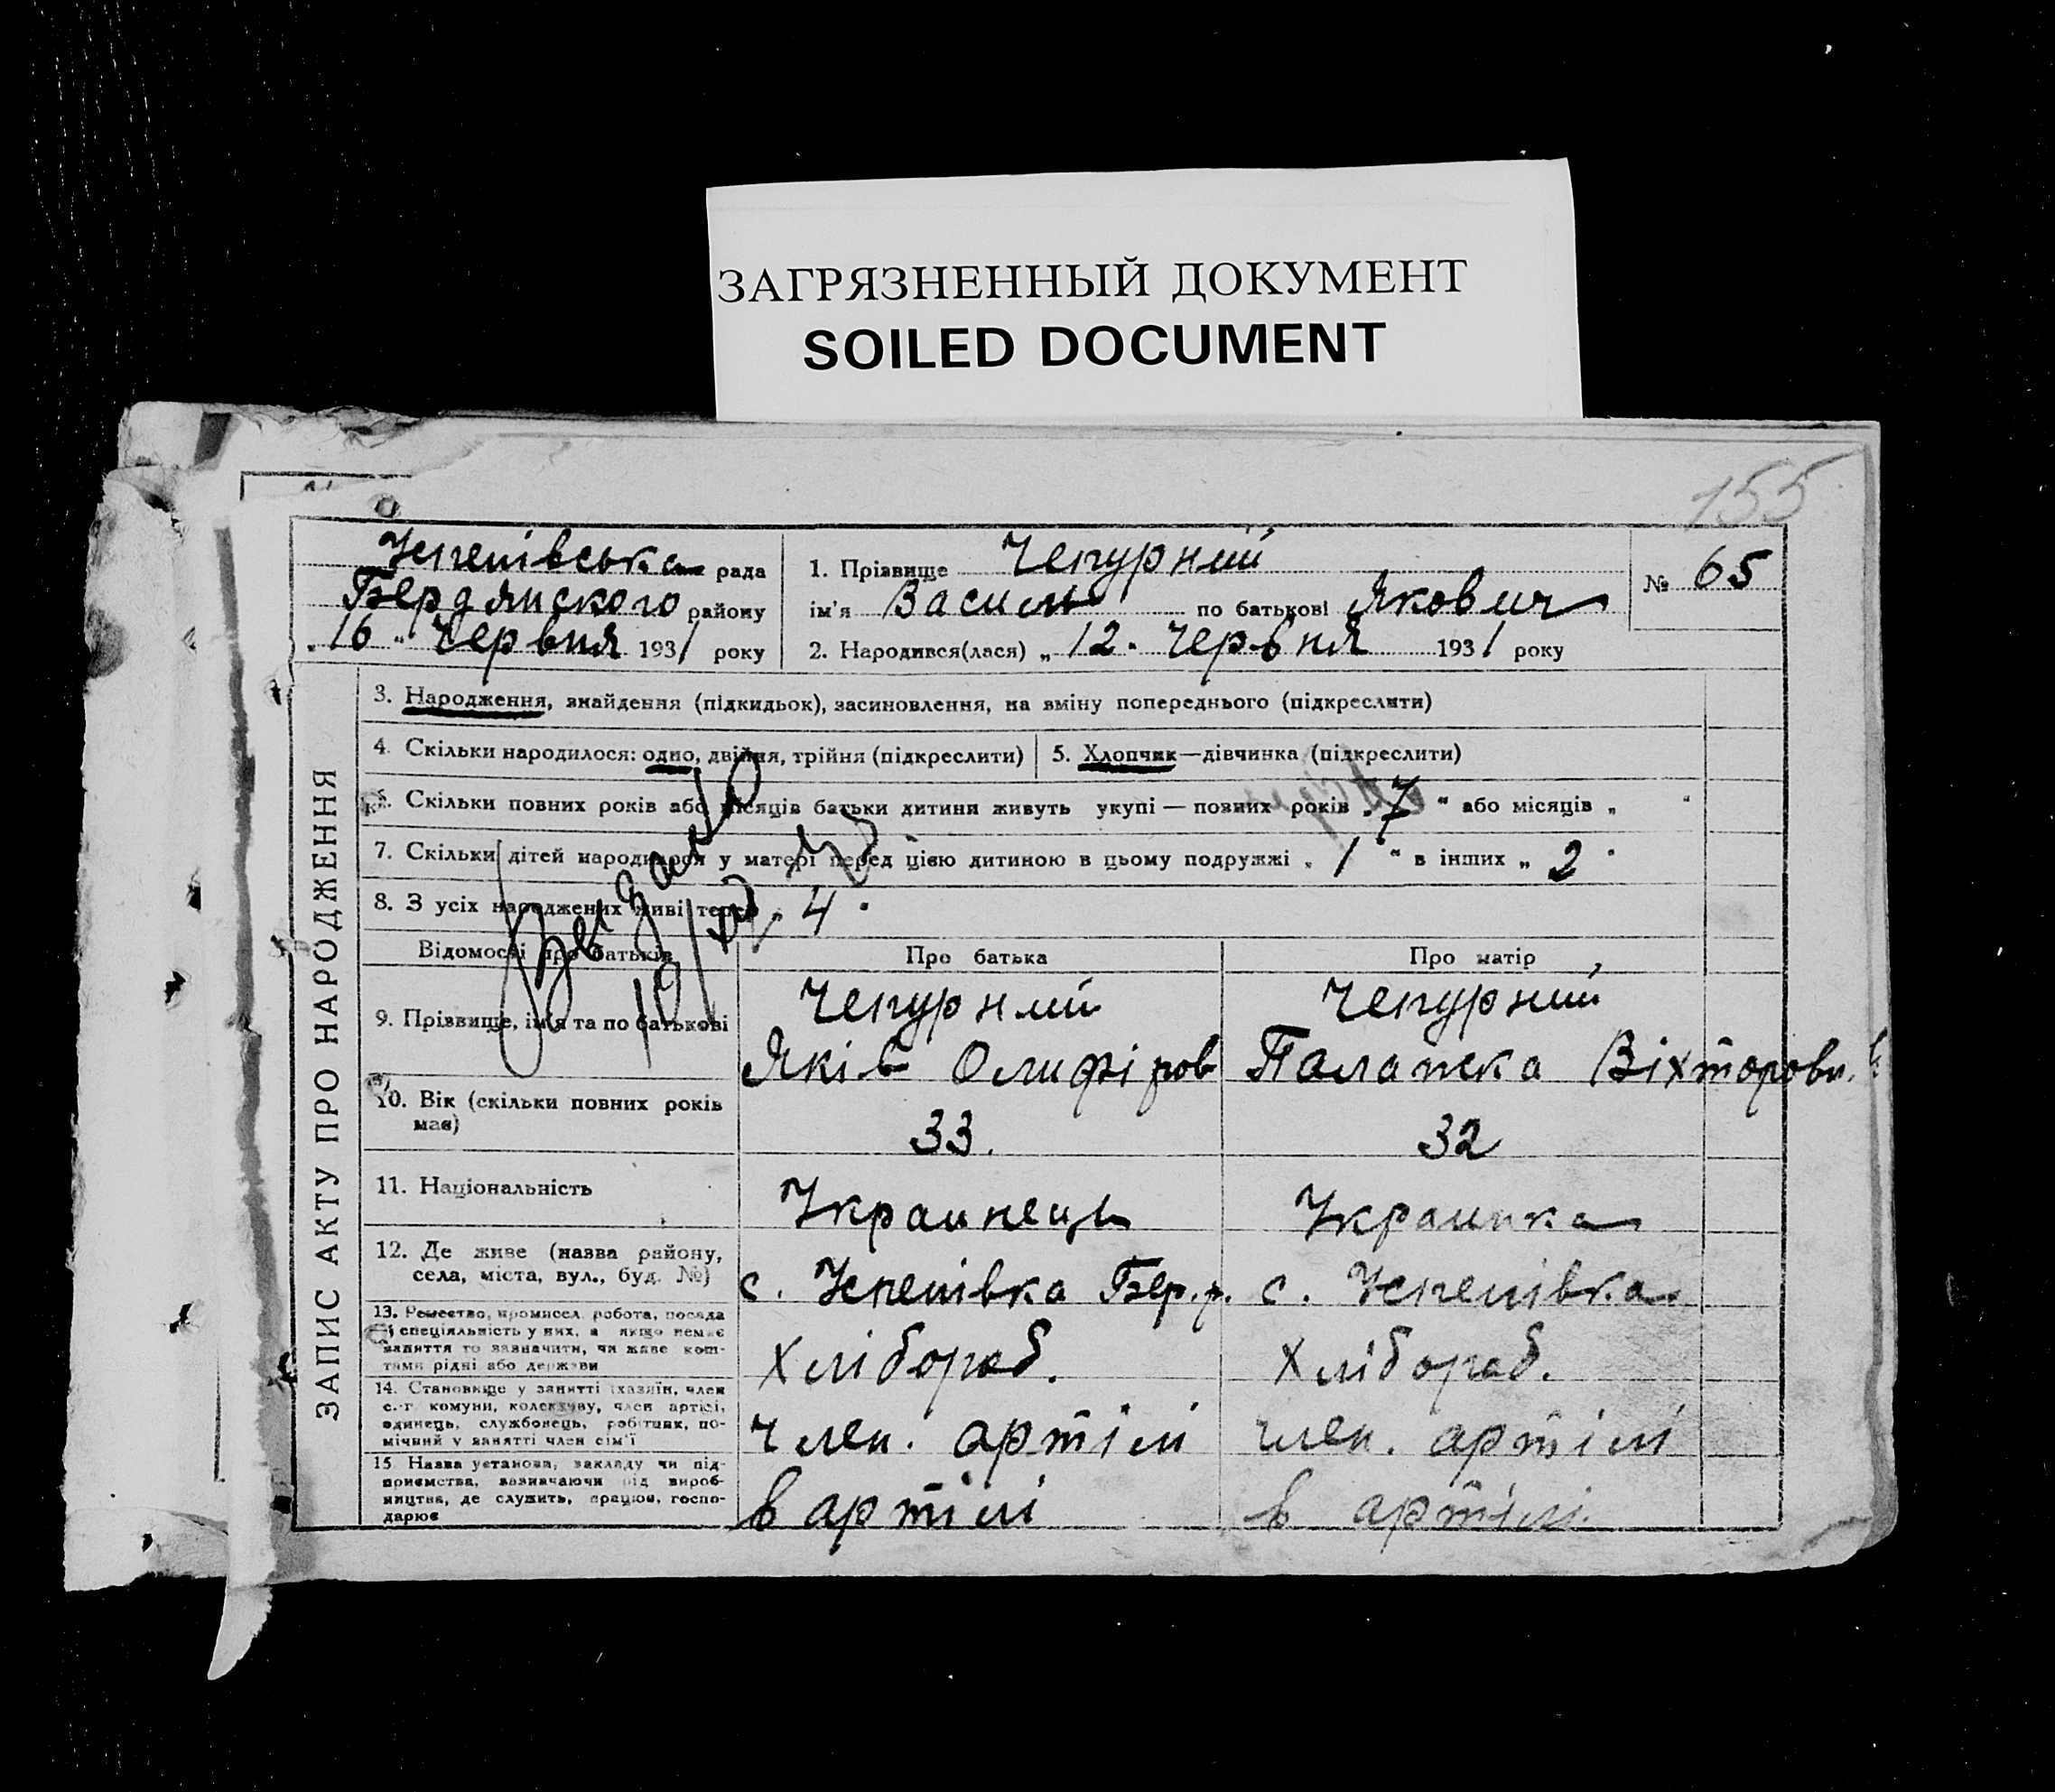 ЗАГРЯЗНЕННЫЙ ДОКУМЕНТ
SOILED DOCUMENT
155
Успепівська рада
Бердянского району
„16" Червня 1931 року
1. Прізвище Чепурний
ім'я Василь по батькові Якович
2. Народився(лася) „12" Червня 1931 року
№ 65
ЗАПИС АКТУ ПРО НАРОДЖЕННЯ
3. Народження, знайдення (підкидьок), засиновлення, на зміну попереднього (підкреслити)
4. Скільки народилося: одно, двійня, трійня (підкреслити)
5. Хлопчик—дівчинка (підкреслити)
6. Скільки повних років або місяців батьки дитини живуть укупі — повних років „7" або місяців „ "
7. Скільки дітей народилося у матері перед цією дитиною в цьому подружжі „1" в інших „2"
8. З усіх народжених живі тепер „4"
Відомості про батьків
Про батька
Про матір
9. Прізвище, ім'я та по батькові
Чепурний
Яків Олифіров
Чепурний
Палажка Віхторовн.
10. Вік (скільки повних років
має)
33.
32
11. Національність
Украинець
Украинка
12. Де живе (назва району,
села, міста, вул., буд. №)
с. Успепівка Бер.р.
с. Успепівка
13. Ремество, промисел, робота, посада
й спеціяльність у них, а якщо немає
заняття то зазначити, чи живе кош-
тами рідні або держави
Хлібороб.
Хлібороб.
14. Становище у занятті (хазяїн, член
с.-г. комуни, колективу, член артілі,
одинець, службовець, робітник, по-
мічний у занятті член сім'ї
член. артілі
член. артілі
15. Назва установи, закладу чи під-
приємства, зазначаючи рід вироб-
ництва, де служить, працює, госпо-
дарює
в артілі
в артілі.